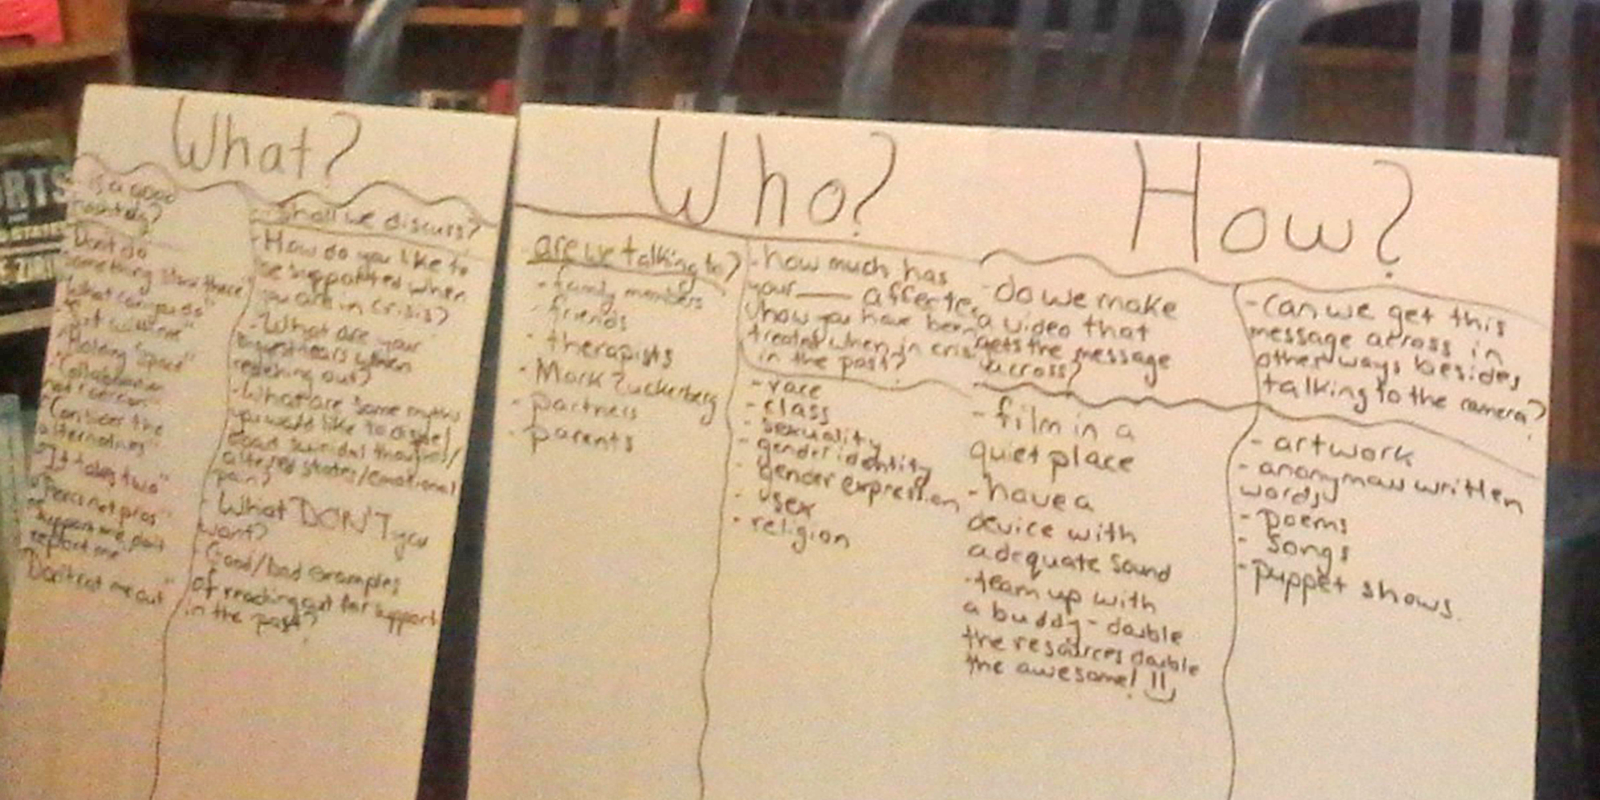 What?
is a good
Don't do
something
"What can you do"
"Holding Space"
"Collaboration
"Consider the
alternatives"
"It takes two"
"Peers not pros"
"Support me, don't
report me"
"Don't cut me out"
- Shall we discuss?
- How do you like to
be supported when
you are in crisis?
- What are your
biggest fears when
reaching out?
- What are some myths
you would like to dispel/
about suicidal thoughts/
altered states/emotional
pain?
- What DON'T you
want?
- Good/bad examples
of reaching out for support
in the past?
Who?
are we talking to?
- family members
- friends
- therapists
- Mark Zuckerberg
- partners
- parents
- how much has
your ___ affected
how you have been
treated when in crisis
in the past?
- race
- class
- sexuality
- gender identity
- gender expression
- sex
- religion
How?
- do we make
a video that
gets the message
across?
- film in a
quiet place
- have a
device with
adequate sound
- team up with
a buddy - double
the resources double
the awesome! !!
- can we get this
message across in
other ways besides
talking to the camera?
- artwork
- anonymous written
words
- poems
- songs
- puppet shows.
ARTS